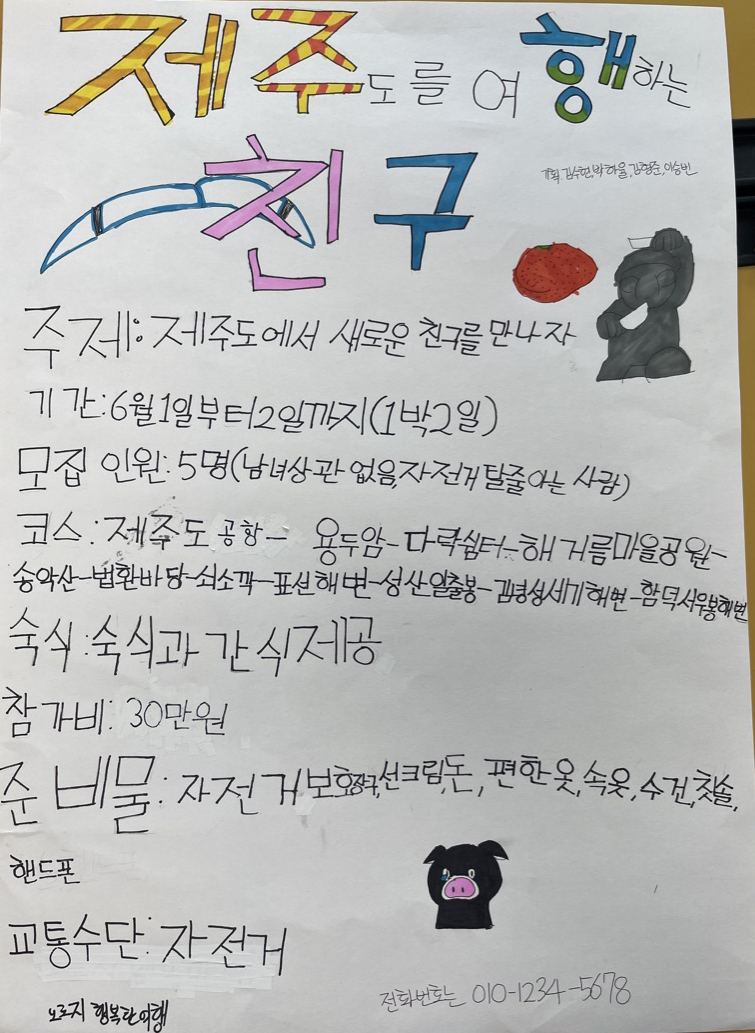 제주도를 여행하는
친구
기획 김수현,박하율,김형준,이승빈
주제: 제주도에서 새로운 친구를 만나자
기간: 6월1일부터2일까지(1박2일)
모집 인원: 5명(남녀상관 없음,자전거 탈줄아는 사람)
코스: 제주도 공항- 용두암-다락쉼터-해거름마을공원-
송악산-법환바당-쇠소깍-표선해변-성산일출봉-김녕성세기해변-함덕서우봉해변
숙식: 숙식과 간식제공
참가비: 30만원
준비물: 자전거보호장구,선크림,돈, 편한 옷,속옷,수건,칫솔,
핸드폰
교통수단: 자전거
오로지 행복한여행
전화번호는 010-1234-5678